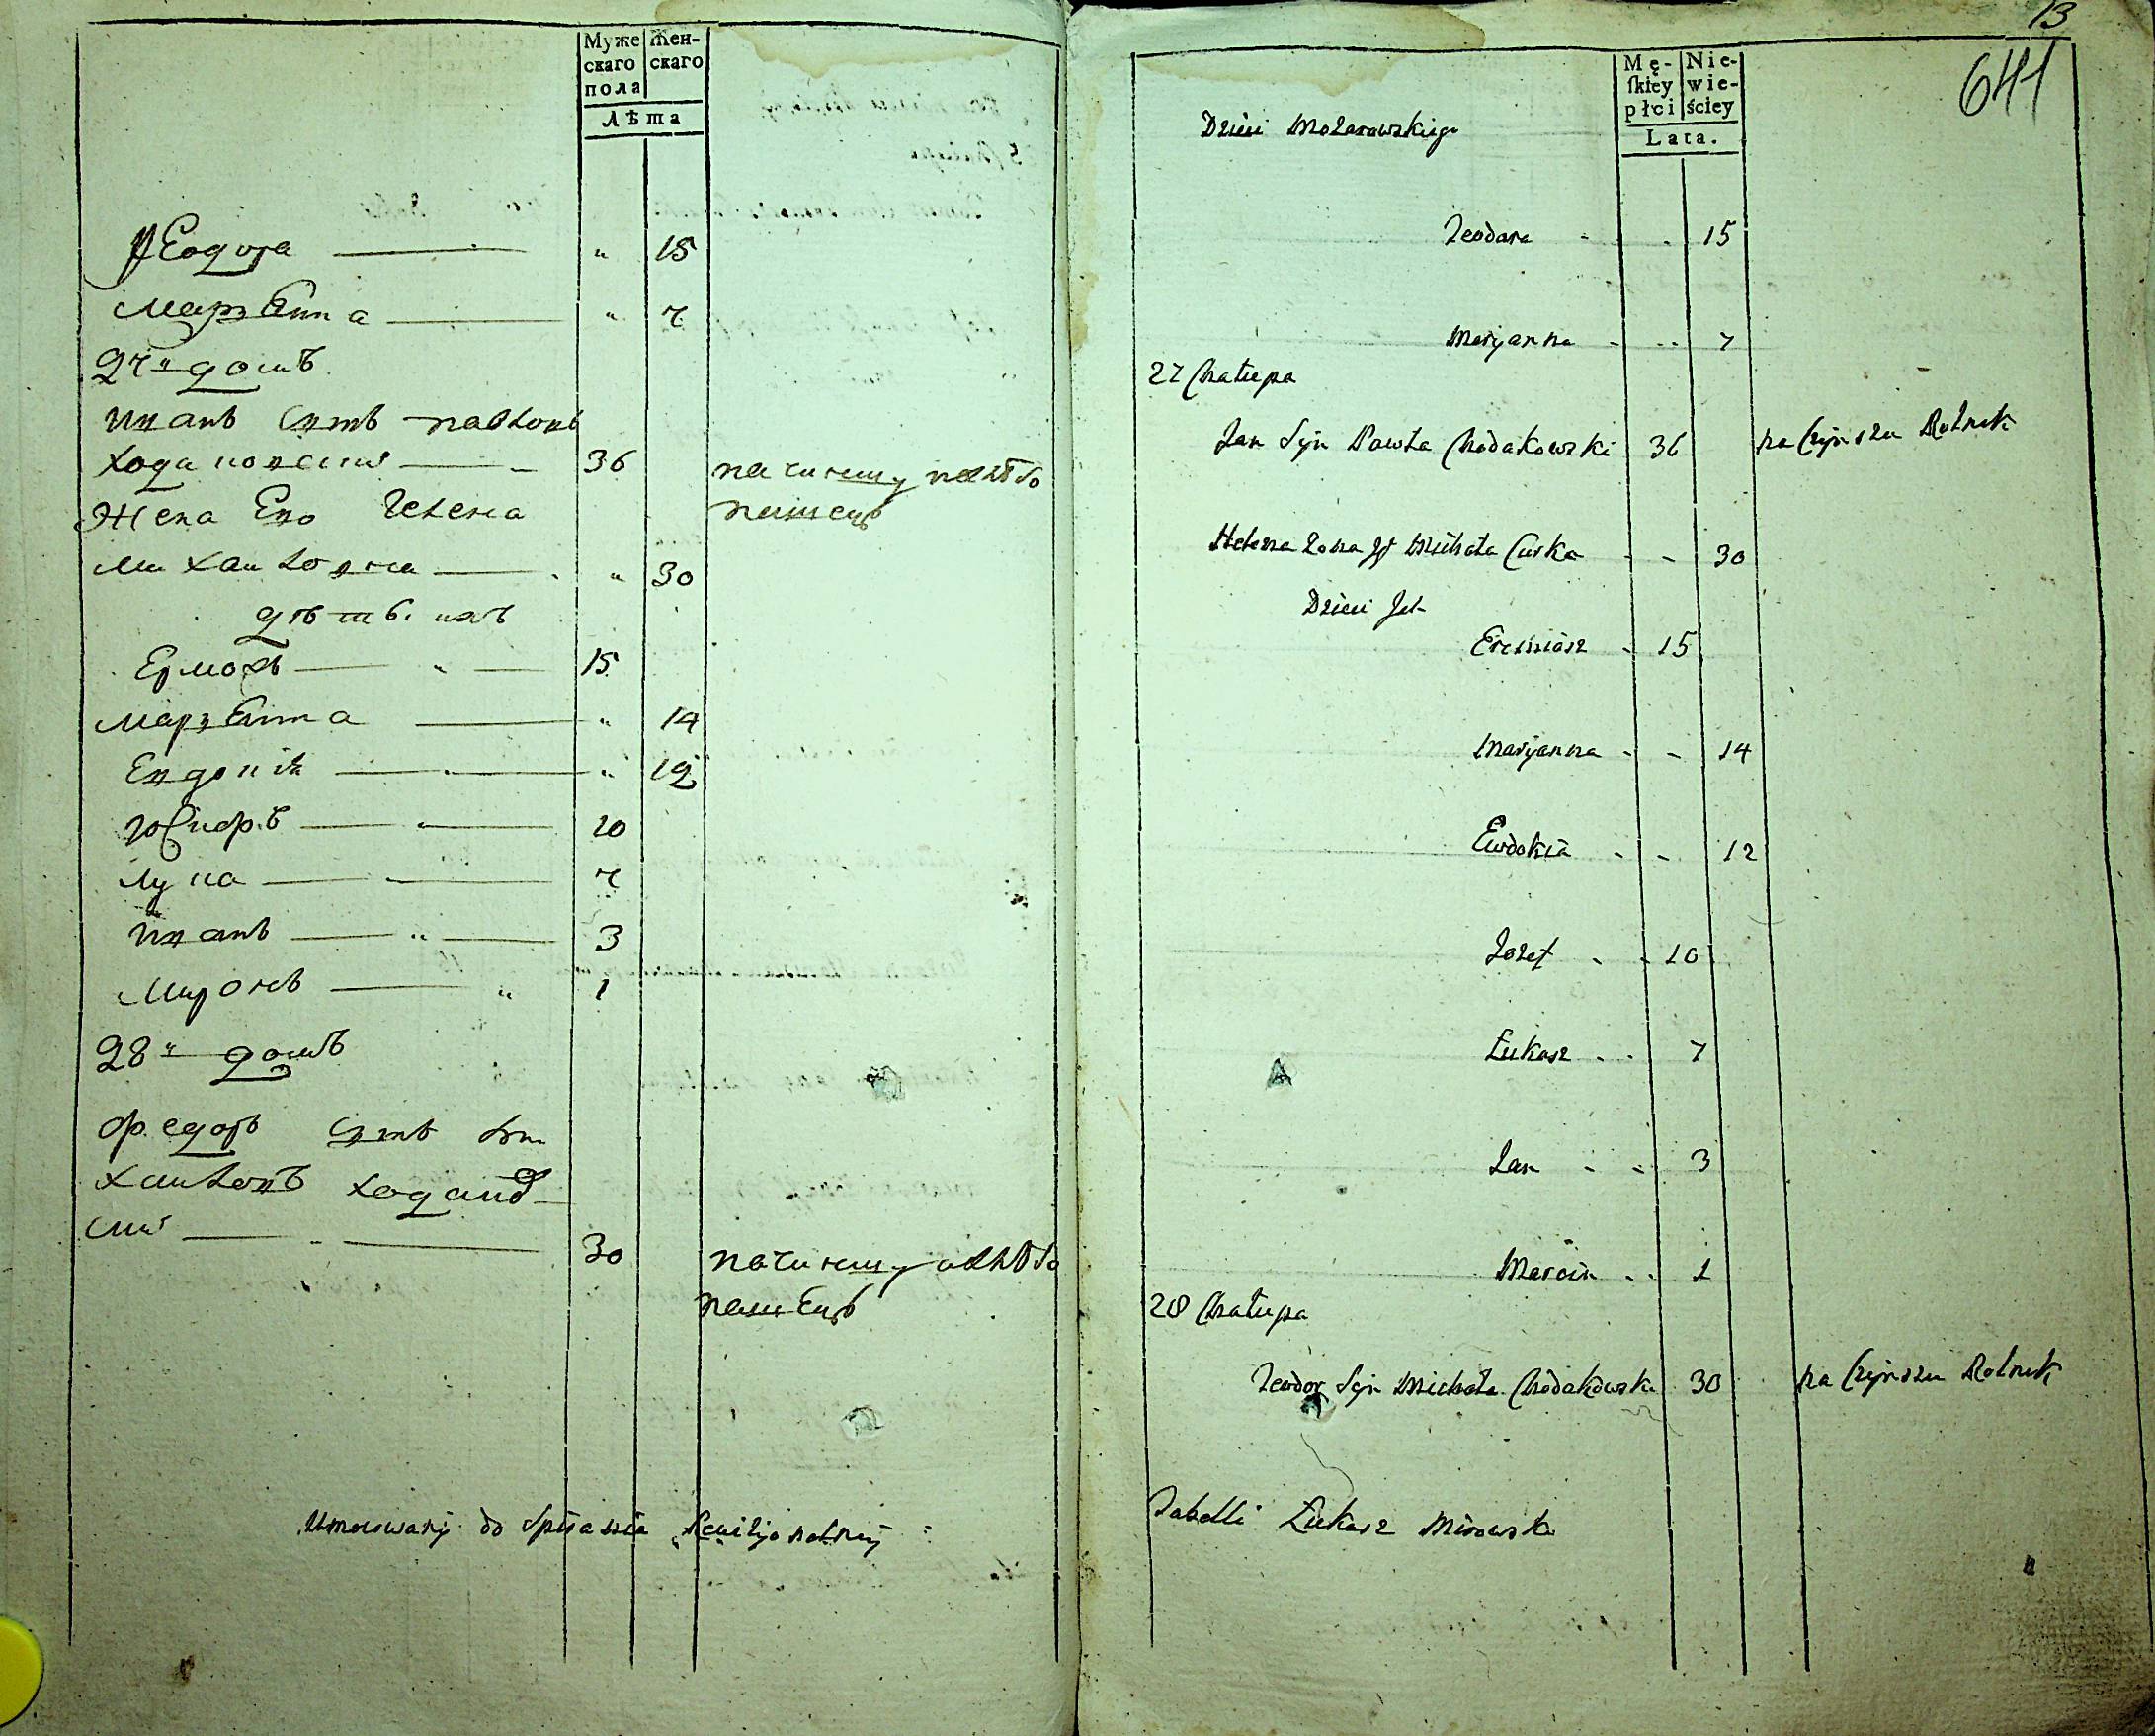 Муже
скаго
пола
Жен-
скаго
Лѣта
Ѳеодора — " 15
Марѣанна — " 7
27й домъ
Иванъ Сынъ Павловъ
Ходаковски — 36 на чиншу
Жена Его Гелена
Михайловна — " 30
дѣти ихъ
15
Марѣанна — " 14
Евдокія — " 12
Юсифъ — " 10
Лука — 7
Иванъ — " 3
Миронъ — " 1
28й домъ
Федоръ Сынъ Ми
хайловъ Ходаков
ски — 30 на чиншу
Umocowany do Spisania Rewizjonalney
13
641
Mę-
ſkiey
płci
Nie-
wie-
ściey
Lata.
Dzieci Mozarowskiego
Teodora - . 15
Maryanna - .. 7
27 Chałupa
Jan Syn Pawła Chodakowski 36 na Czynszu Rolnik
Helena Zona Jº Michała Curka - - 30
Dzieci Ich
Eremiasz - 15
Maryanna - - 14
Ewdokia - - 12
Jozef - - 10
Łukasz - .. 7
Jan - - 3
Marcin .. 1
28 Chałupa
Teodor Syn Michała Chodakowski 30 na Czynszu Rolnik
Tabelli Łukasz Mirowski